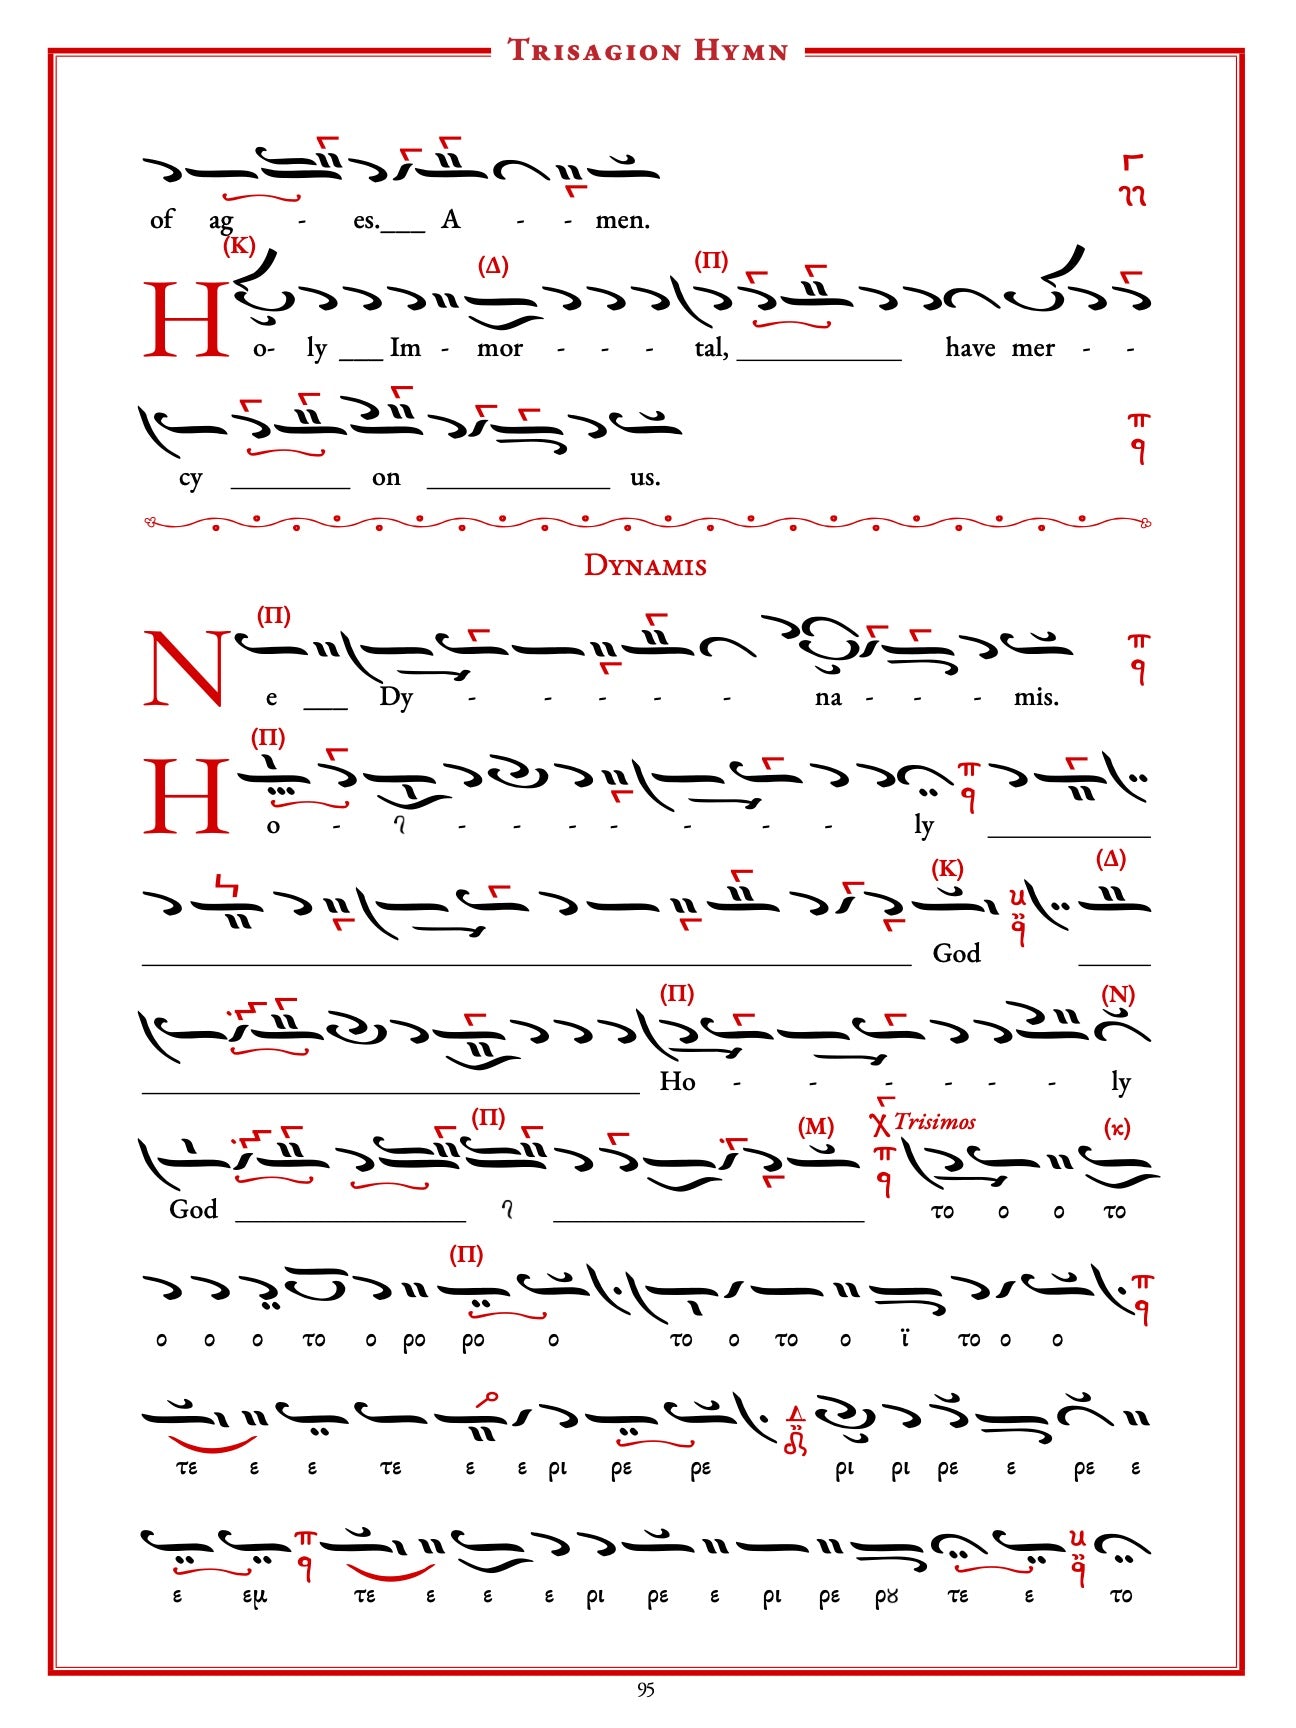 TRISAGION HYMN
of ag - es.___ A - - men.
(K) (Δ) (Π)
Ho- ly ___ Im - mor - - - tal, ___________ have mer - -
cy ________ on ____________ us.
DYNAMIS
(Π)
Ne ___ Dy - - - - - na - - - mis.
(Π)
Ho - - - - - - - - ly ___________
(K) (Δ)
God
(Π) (N)
Ho - - - - - - ly
(Π) (M) Trisimos (κ)
God ________________ το ο ο το
(Π)
ο ο ο το ο ρο ρο ο το ο το ο ϊ το ο ο
τε ε ε τε ε ε ρι ρε ρε ρι ρι ρε ε ρε ε
ε εμ τε ε ε ε ρι ρε ε ρι ρε ρȣ τε ε το
95